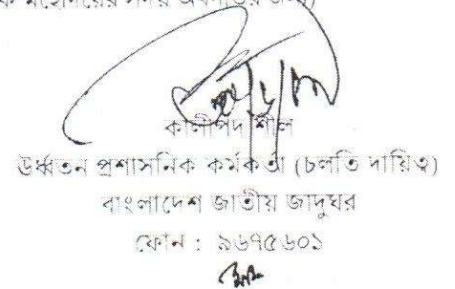 মহোদয়ের সদয় অবগতির জন্য)
কালীপদ শীল
উর্ধ্বতন প্রশাসনিক কর্মকর্তা (চলতি দায়িত্ব)
বাংলাদেশ জাতীয় জাদুঘর
ফোন : ৯৬৭৫৬০১